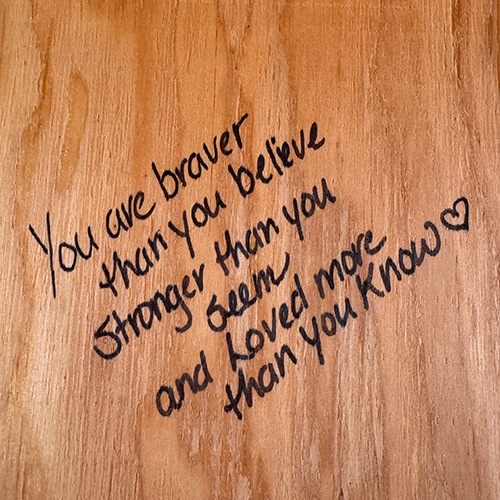 You are braver
than you believe
Stronger than you
seem
and Loved more
than you Know ♡